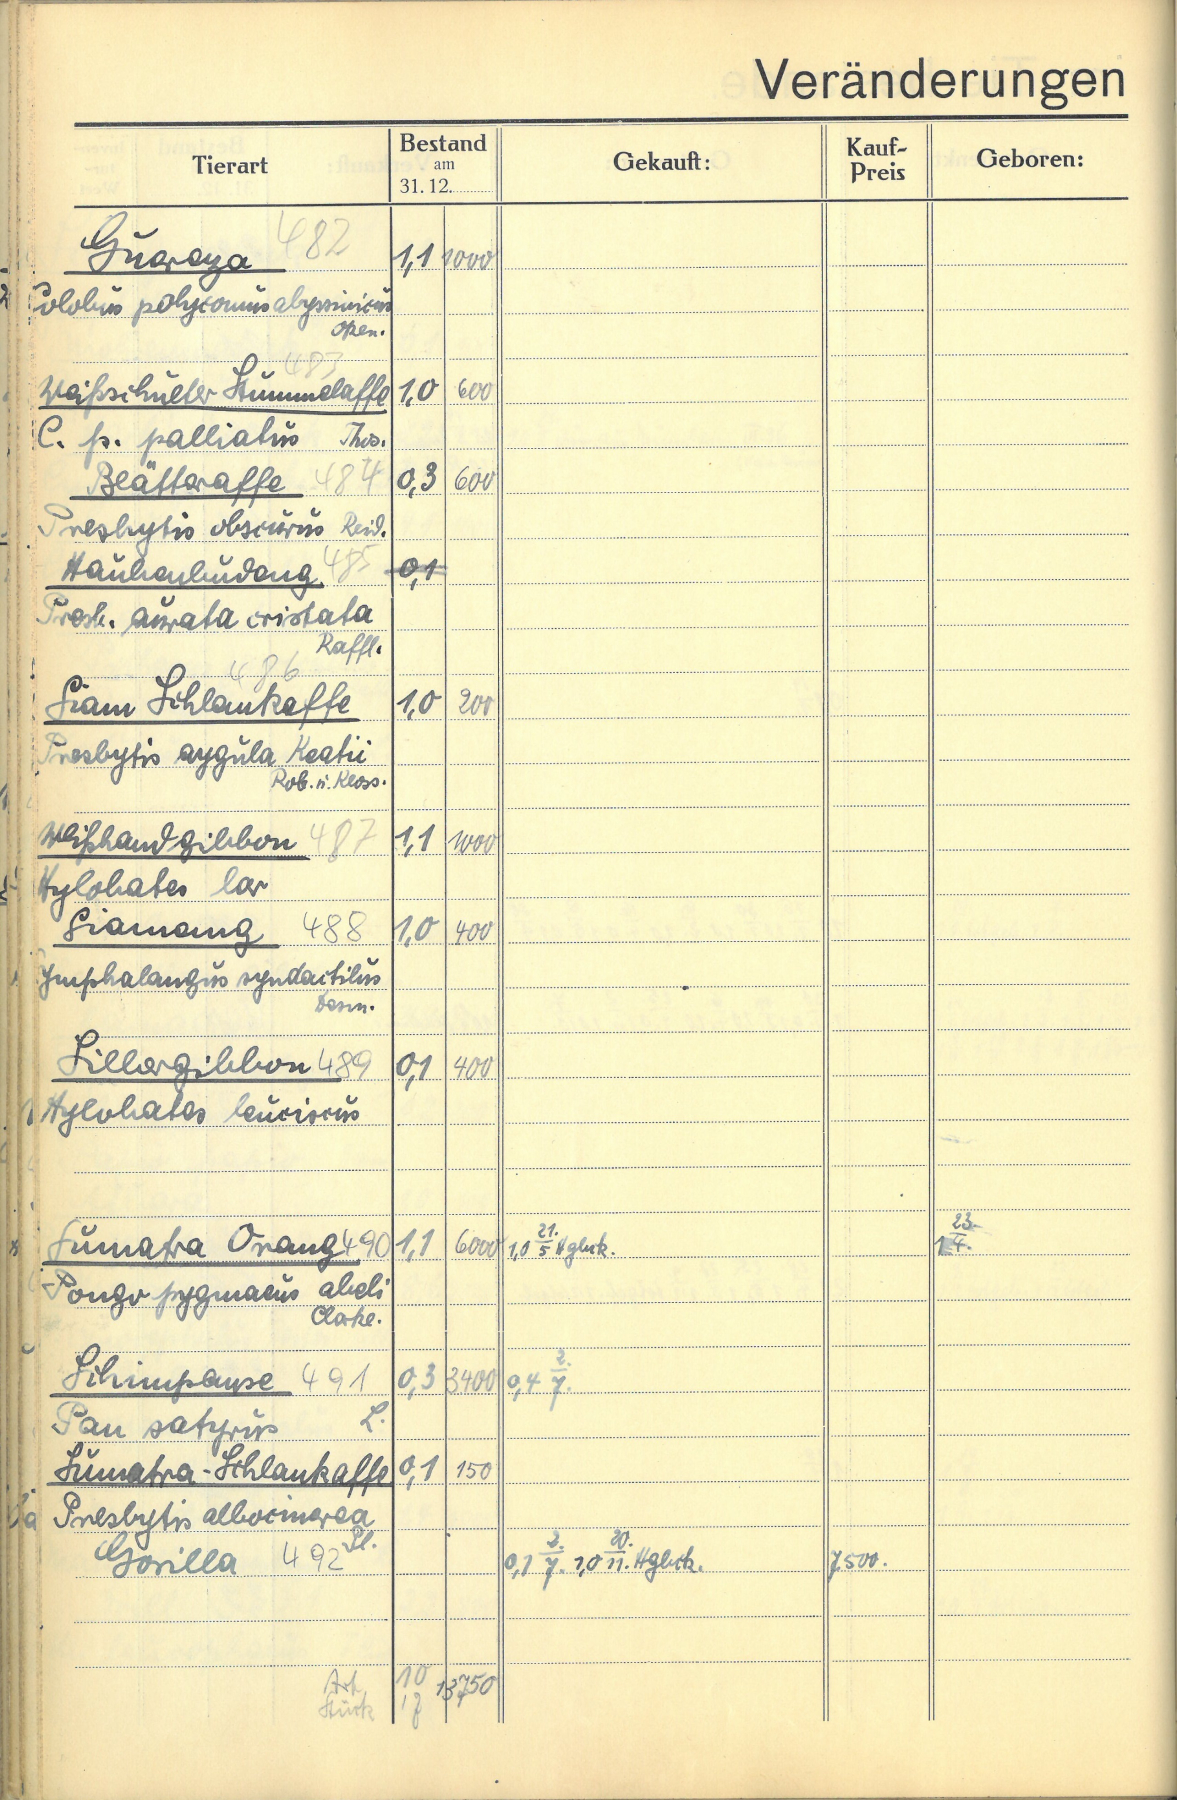 Veränderungen
Tierart Bestand am 31.12. Gekauft: Kauf-Preis Geboren:
Guereza 482 1,1 1000
Colobus polycomus abyssinicus
Oken.
483
Weißschulter Stummelaffe 1,0 600
C. p. palliatus Thos.
Blätteraffe 484 0,3 600
Presbytis obscurus Reid.
Haubenbudeng 485 0,1
Presb. aurata cristata
Raffl.
486
Siam Schlankaffe 1,0 200
Presbytis aygula Keatii
Rob. u. Kloss.
Weißhandgibbon 487 1,1 1000
Hylobates lar
Siamang 488 1,0 400
Symphalangus syndactilus
Desm.
Silbergibbon 489 0,1 400
Hylobates leuciscus
Sumatra Orang 490 1,1 6000 1,0 21./5 Hgbck. 1 23./4.
Pongo pygmaeus abeli
Clarke.
Schimpanse 491 0,3 3400 0,4 2./7.
Pan satyrus L.
Sumatra-Schlankaffe 0,1 150
Presbytis albocinerea
Gorilla 492 0,1 2./7. 1,0 20./11. Hgbck. 7500.
Art 10 13750
Stück 17